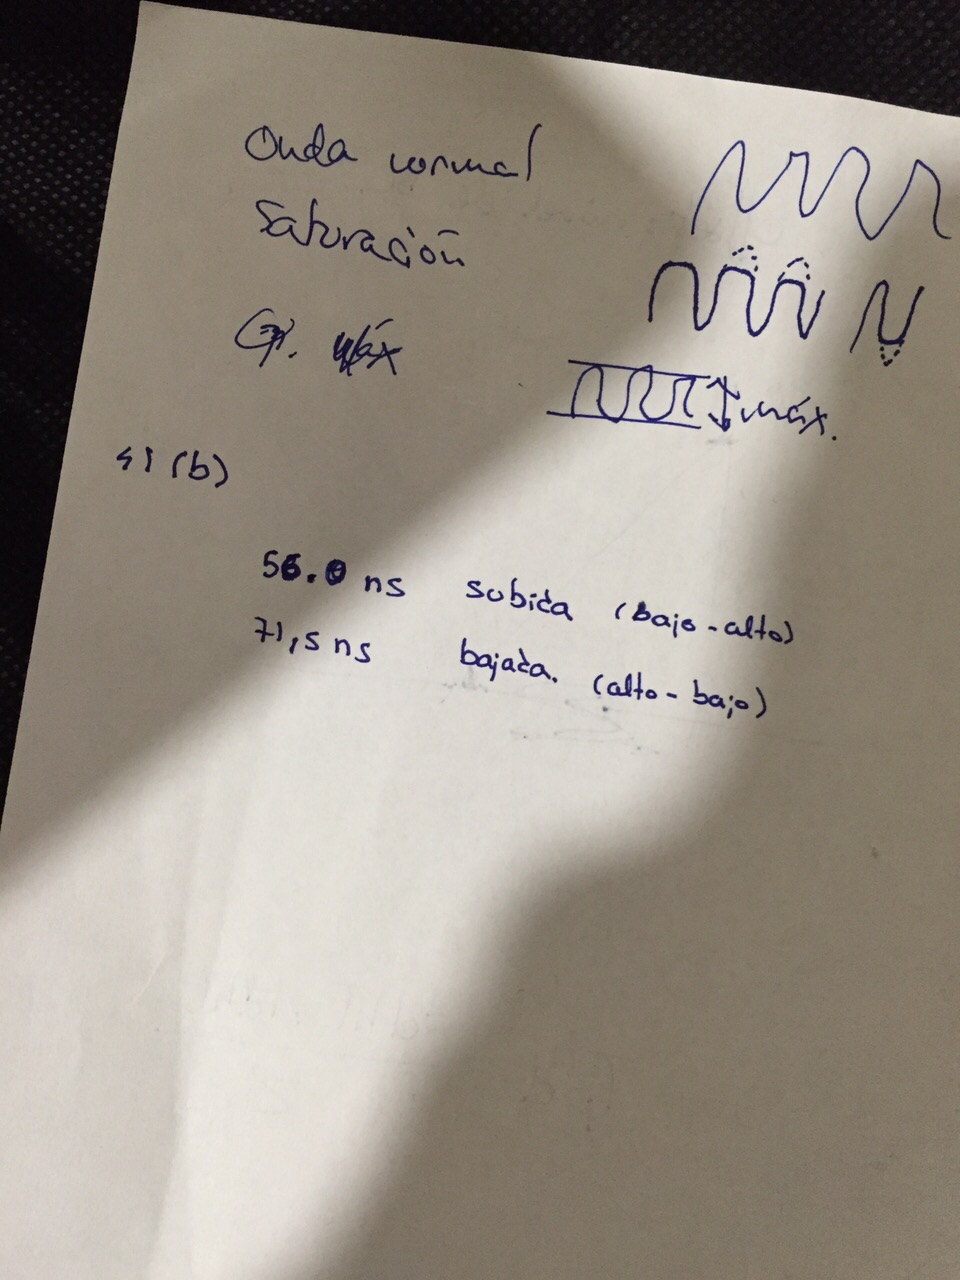 Onda normal
Saturación
máx
máx.
41 (b)
56.0 ns subida (bajo-alto)
71,5 ns bajada. (alto-bajo)